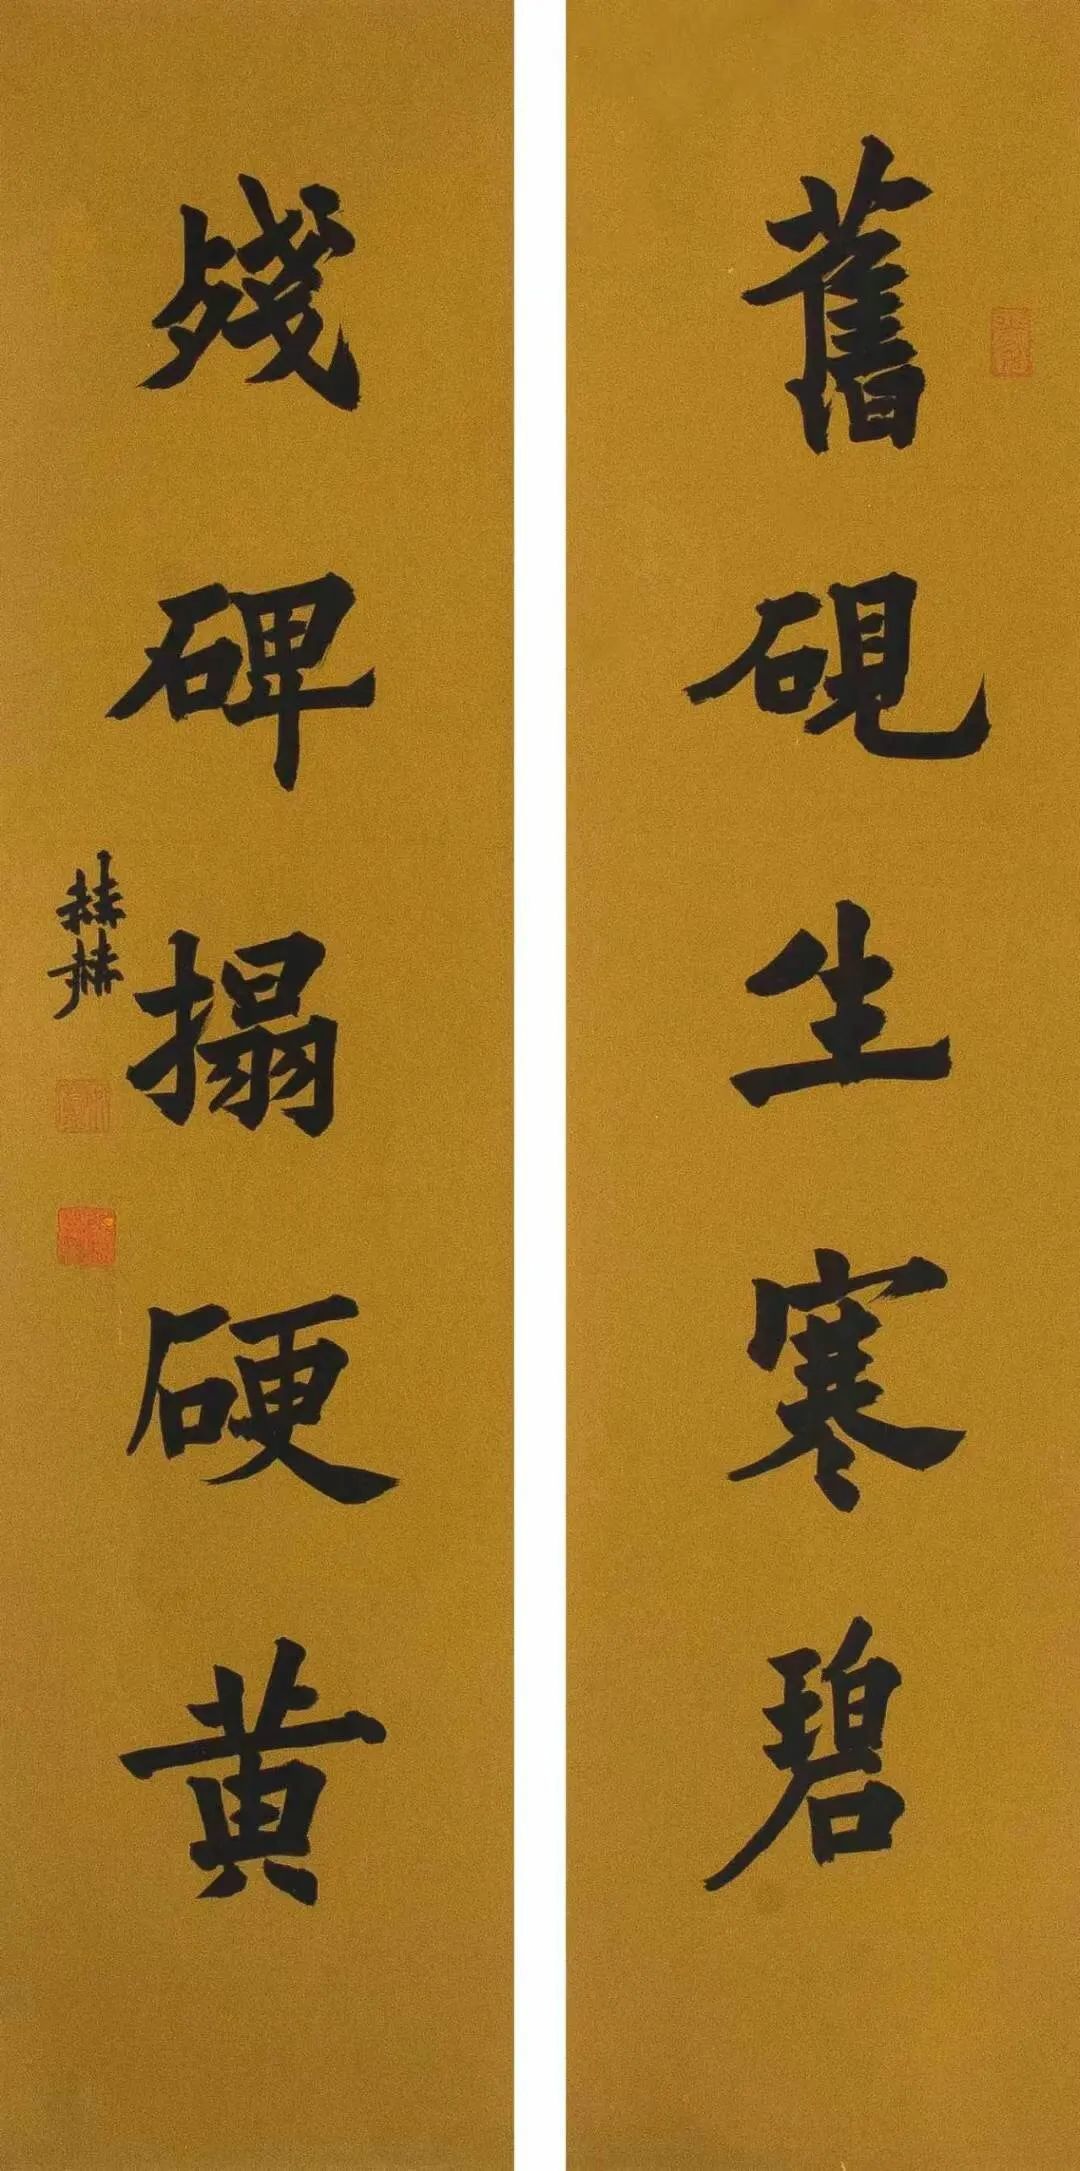 舊硯生寒碧
殘碑搨硬黄
赫赫